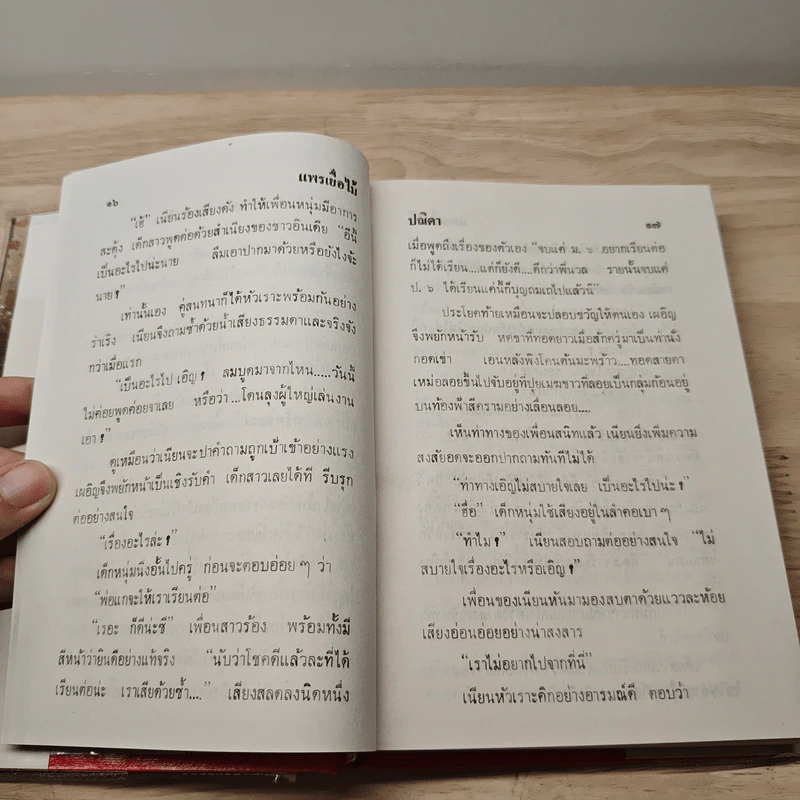 ๑๖
แพรเยื่อไม้
"เฮ้" เนียนร้องเสียงดัง ทำให้เพื่อนหนุ่มมีอาการ
สะดุ้ง เด็กสาวพูดต่อด้วยสำเนียงของชาวอินเดีย "อีนี้
เป็นอะไรไปน่ะนาย ลืมเอาปากมาด้วยหรือยังไงจ๊ะ
นาย?"
เท่านั้นเอง คู่สนทนาก็ได้หัวเราะพร้อมกันอย่าง
ร่าเริง เนียนจึงถามซ้ำด้วยน้ำเสียงธรรมดาและจริงจัง
กว่าเมื่อแรก
"เป็นอะไรไป เอิญ? ลมบูดมาจากไหน.....วันนี้
ไม่ค่อยพูดค่อยจาเลย หรือว่า...โดนลุงผู้ใหญ่เล่นงาน
เอา?"
ดูเหมือนว่าเนียนจะปาคำถามถูกเป้าเข้าอย่างแรง
เผอิญจึงพยักหน้าเป็นเชิงรับคำ เด็กสาวเลยได้ที รีบรุก
ต่ออย่างสนใจ
"เรื่องอะไรล่ะ?"
เด็กหนุ่มนิ่งอั้นไปครู่ ก่อนจะตอบอ่อย ๆ ว่า
"พ่อแกจะให้เราเรียนต่อ"
"เรอะ ก็ดีน่ะซี" เพื่อนสาวร้อง พร้อมทั้งมี
สีหน้าว่ายินดีอย่างแท้จริง "นับว่าโชคดีแล้วละที่ได้
เรียนต่อน่ะ เราเสียด้วยซ้ำ...." เสียงสลดลงนิดหนึ่ง
ปณิดา
๑๗
เมื่อพูดถึงเรื่องของตัวเอง "จบแค่ ม. ๖ อยากเรียนต่อ
ก็ไม่ได้เรียน...แต่ก็ยังดี....ดีกว่าพี่นวล รายนั้นจบแค่
ป. ๖ ได้เรียนแค่นี้ก็บุญถมเถไปแล้วนี่"
ประโยคท้ายเหมือนจะปลอบขวัญให้ตนเอง เผอิญ
จึงพยักหน้ารับ หดขาที่ทอดยาวเมื่อสักครู่มาเป็นท่านั่ง
กอดเข่า เอนหลังพิงโคนต้นมะพร้าว....ทอดสายตา
เหม่อลอยขึ้นไปจับอยู่ที่ปุยเมฆขาวที่ลอยเป็นกลุ่มก้อนอยู่
บนท้องฟ้าสีครามอย่างเลื่อนลอย....
เห็นท่าทางของเพื่อนสนิทแล้ว เนียนยิ่งเพิ่มความ
สงสัยอดจะออกปากถามทันทีไม่ได้
"ท่าทางเอิญไม่สบายใจเลย เป็นอะไรไปน่ะ?"
"ฮื่อ" เด็กหนุ่มใช้เสียงอยู่ในลำคอเบา ๆ
"ทำไม?" เนียนสอบถามต่ออย่างสนใจ "ไม่
สบายใจเรื่องอะไรหรือเอิญ?"
เพื่อนของเนียนหันมามองสบตาด้วยแววละห้อย
เสียงอ่อนอ่อยอย่างน่าสงสาร
"เราไม่อยากไปจากที่นี่"
เนียนหัวเราะคิกอย่างอารมณ์ดี ตอบว่า